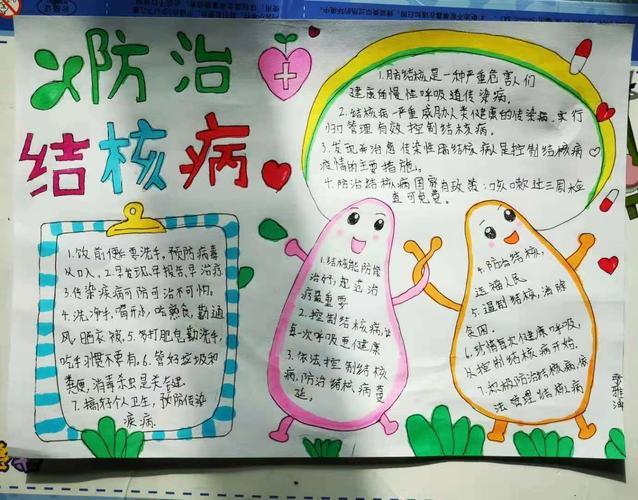 防治
结核病
1.肺结核是一种严重危害人们
健康的慢性呼吸道传染病。
2.结核病严重威胁人类健康的传染病,实行
归口管理有效控制结核病。
3.发现并治愈传染性肺结核病人是控制结核病
疫情的主要措施。
4.防治结核病国家有政策:咳嗽过三周检
查可免费。
1.饭前便后要洗手,预防病毒
从口入。2.早发现早报告,早治疗
3.传染疾病可防可治不可怕。
4.洗净手,喝开水,吃熟食,勤通
风,晒衣被。5.打肥皂勤洗手,
吃手习惯不要有。6.管好垃圾和
粪便,消毒杀虫是关键。
7.搞好个人卫生,预防传染
疾病。
1.结核能防能
治好,规范治
疗最重要
2.控制结核病,让
每一次呼吸更健康
3.依法控制结核
病,防治结核病蔓
延。
4.防治结核,
造福人民
5.遏制结核,消除
贫困。
6.健康呼吸,
从控制结核病开始。
7.积极防治结核病,依
法管理结核病